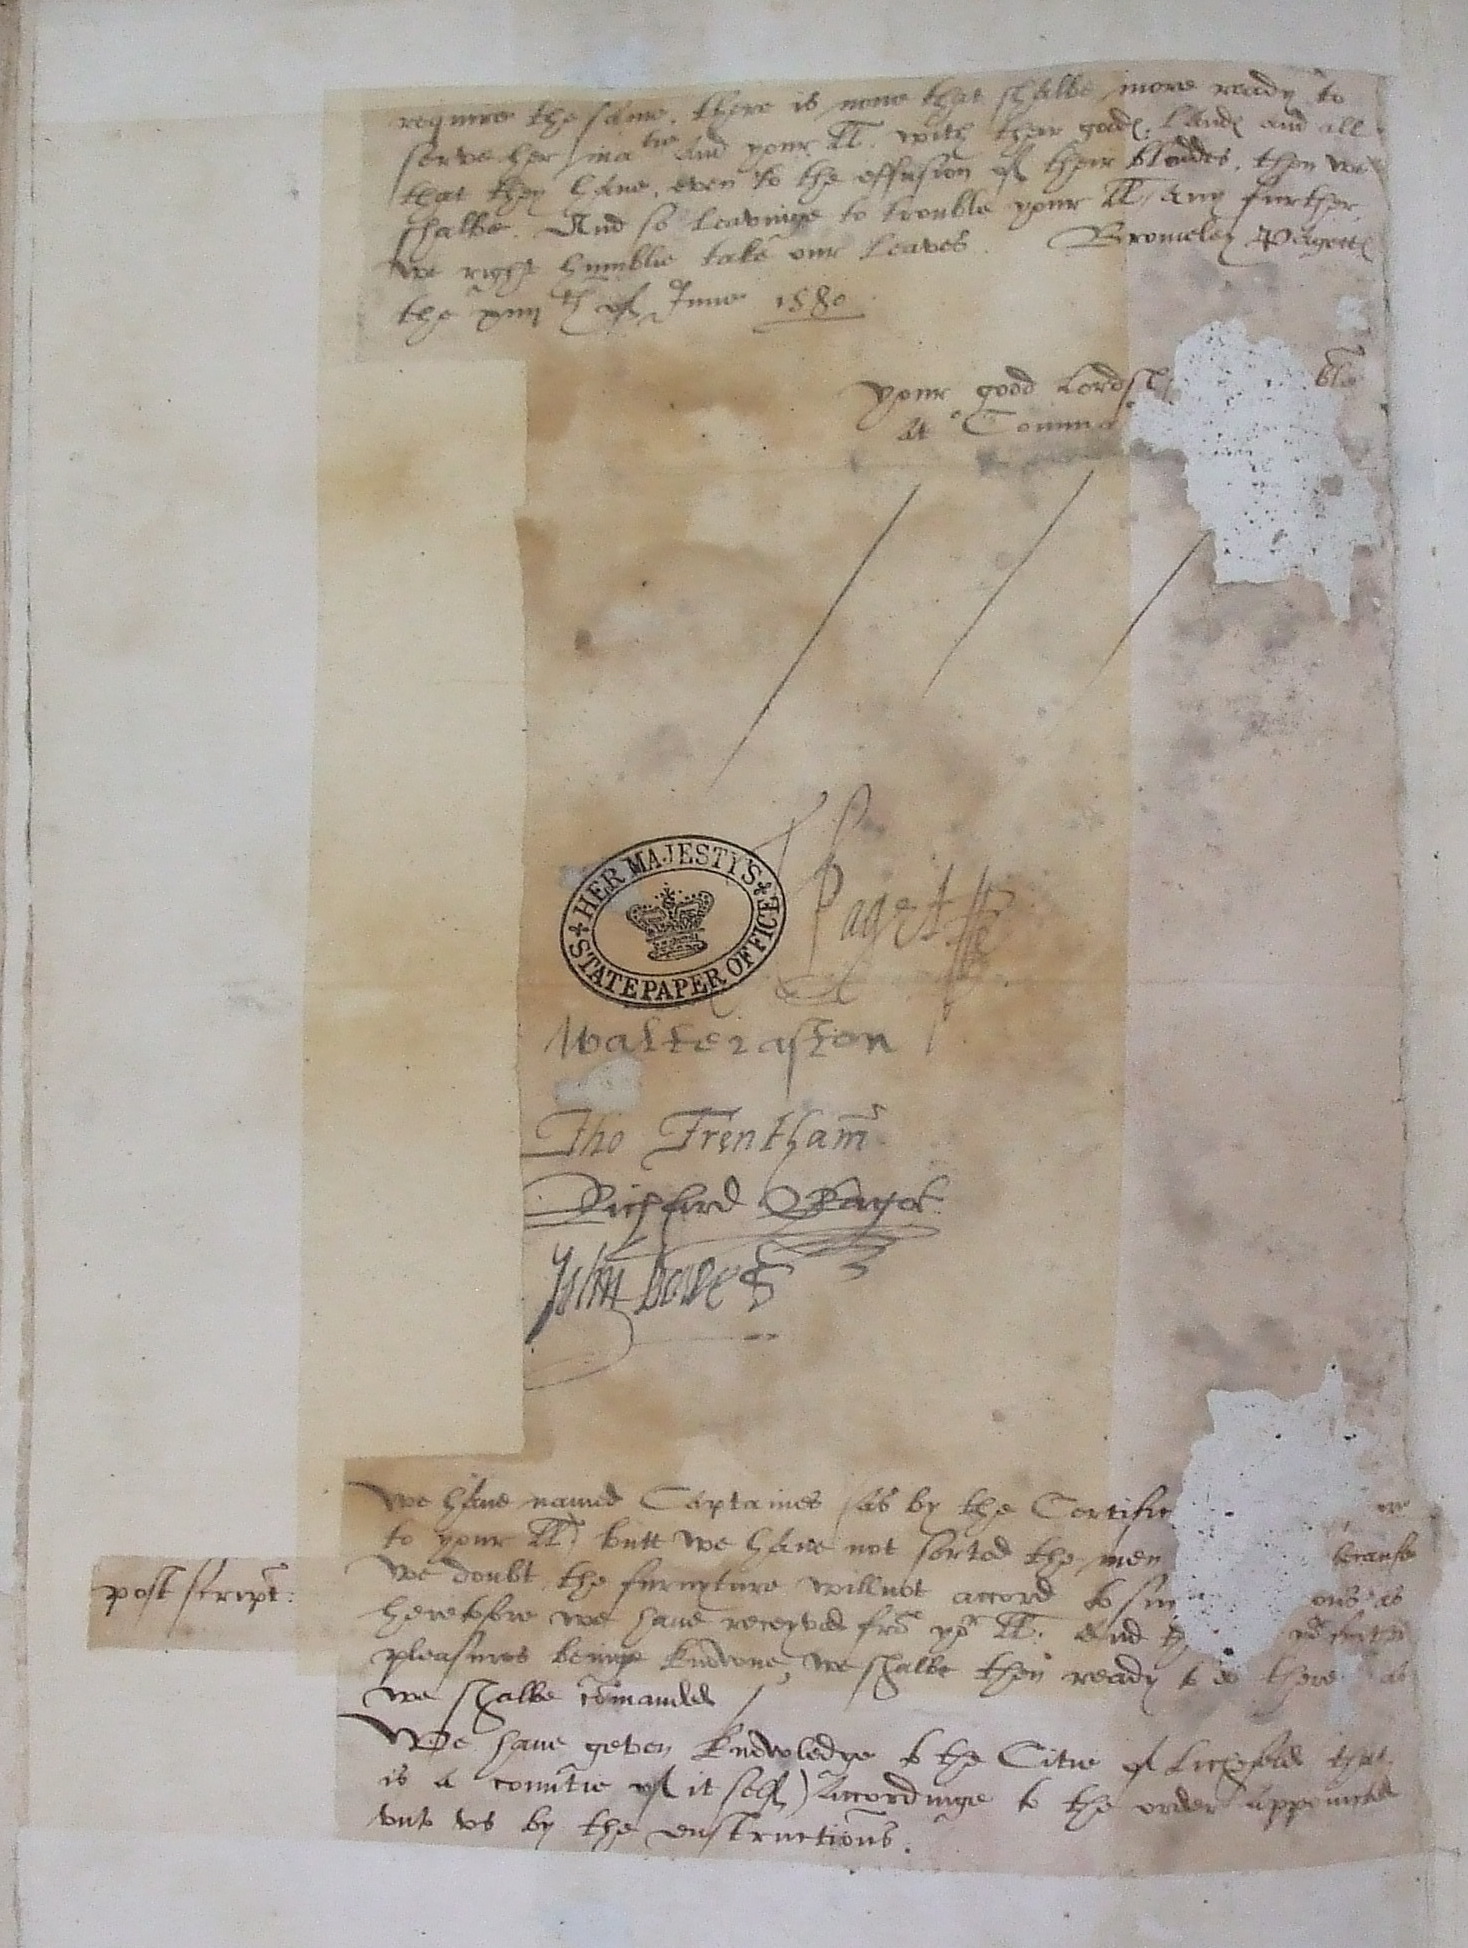 require the same, there is none that shalbe more ready to
serve her matie and your LL. with their goods, Lands and all
that they have, even to the effusion of their bloudes, then we
shalbe. And so leavinge to trouble your LL any further
we right humblie take our leaves. Bromeley Pagette
the of June 1580
your good Lordsh ble
at Comma
HER MAJESTY'S STATE PAPER OFFICE
T Paget
Walter aston
Tho Trentham
Richard Bagot
John Bowes
We have named Captaines (as by the Certific
to your LL) butt we have not sorted the men because
post script:
we doubt the furnyture will not accord to su ons as
heretofore we have receyved frō yor LL. And
pleasures beinge knowne, we shalbe then ready to do there as
we shalbe cōmanded
We have geven knowledge to the Citie of Lichfeld that
is a countie of it self) Accordinge to the order appointed
unto us by the enstructions.